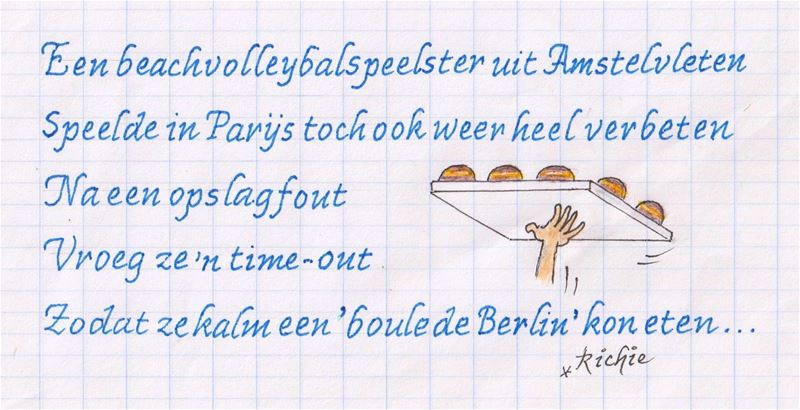 Een beachvolleybalspeelster uit Amstelvleten
Speelde in Parijs toch ook weer heel verbeten
Na een opslagfout
Vroeg ze 'n time-out
Zodat ze kalm een 'boule de Berlin' kon eten...
*Richie